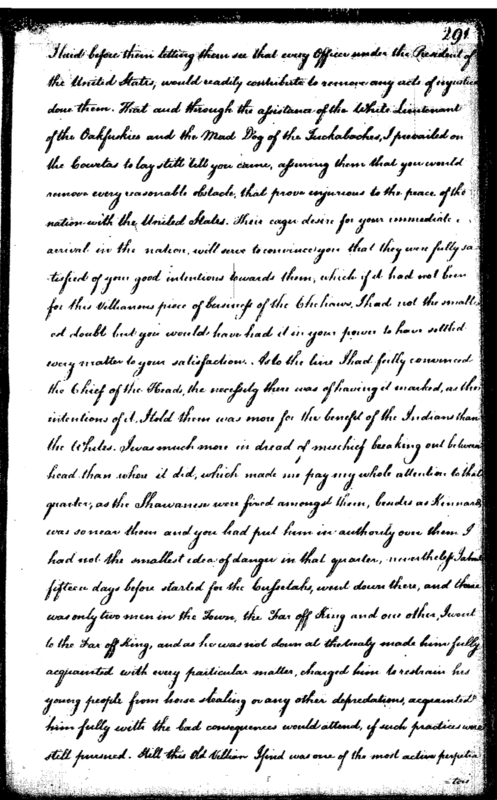 291
I laid before them letting them see that every Officer under the President of
the United States, would readily contribute to remove any acts of injustice
done them. That and through the assistance of the White Lieutenant
of the Oakfuskies and the Mad Dog of the Tuckabaches, I prevailed on
the Cowetas to lay still till you came, assuring them that you would
remove every reasonable obstacle, that prove injurious to the peace of the
nation with the United States. Their eager desire for your immediate
arrival in the nation, will serve to convince you that they were fully sa
tisfied of your good intentions towards them, which if it had not been
for this villianous piece of business of the Chehaws, I had not the smalle
st doubt but you would have had it in your power to have settled
every matter to your satisfaction. As to the line I had fully convinced
the Chief of the Heads, the necessity there was of having it marked, as the
intentions of it, I told them was more for the benefit of the Indians than
the Whites. I was much more in dread of mischief breaking out between
head than where it did, which made me pay my whole attention to that
quarter, as the Shawanese were fixed amongst them, besides as Kinnard
was so near them and you had put him in authority over them I
had not the smallest idea of danger in that quarter, nevertheless I about
fifteen days before started for the Cussetahs, went down there, and there
was only two men in the Town, the Far off King and one other, I went
to the Far off King, and as he was not down at the treaty made him fully
acquainted with every particular matter, charged him to restrain his
young people from horse stealing or any other depredations, acquainted
him fully with the bad consequences would attend, if such practices were
still pursued. Still this Old Villian I find was one of the most active perpetra
-tors